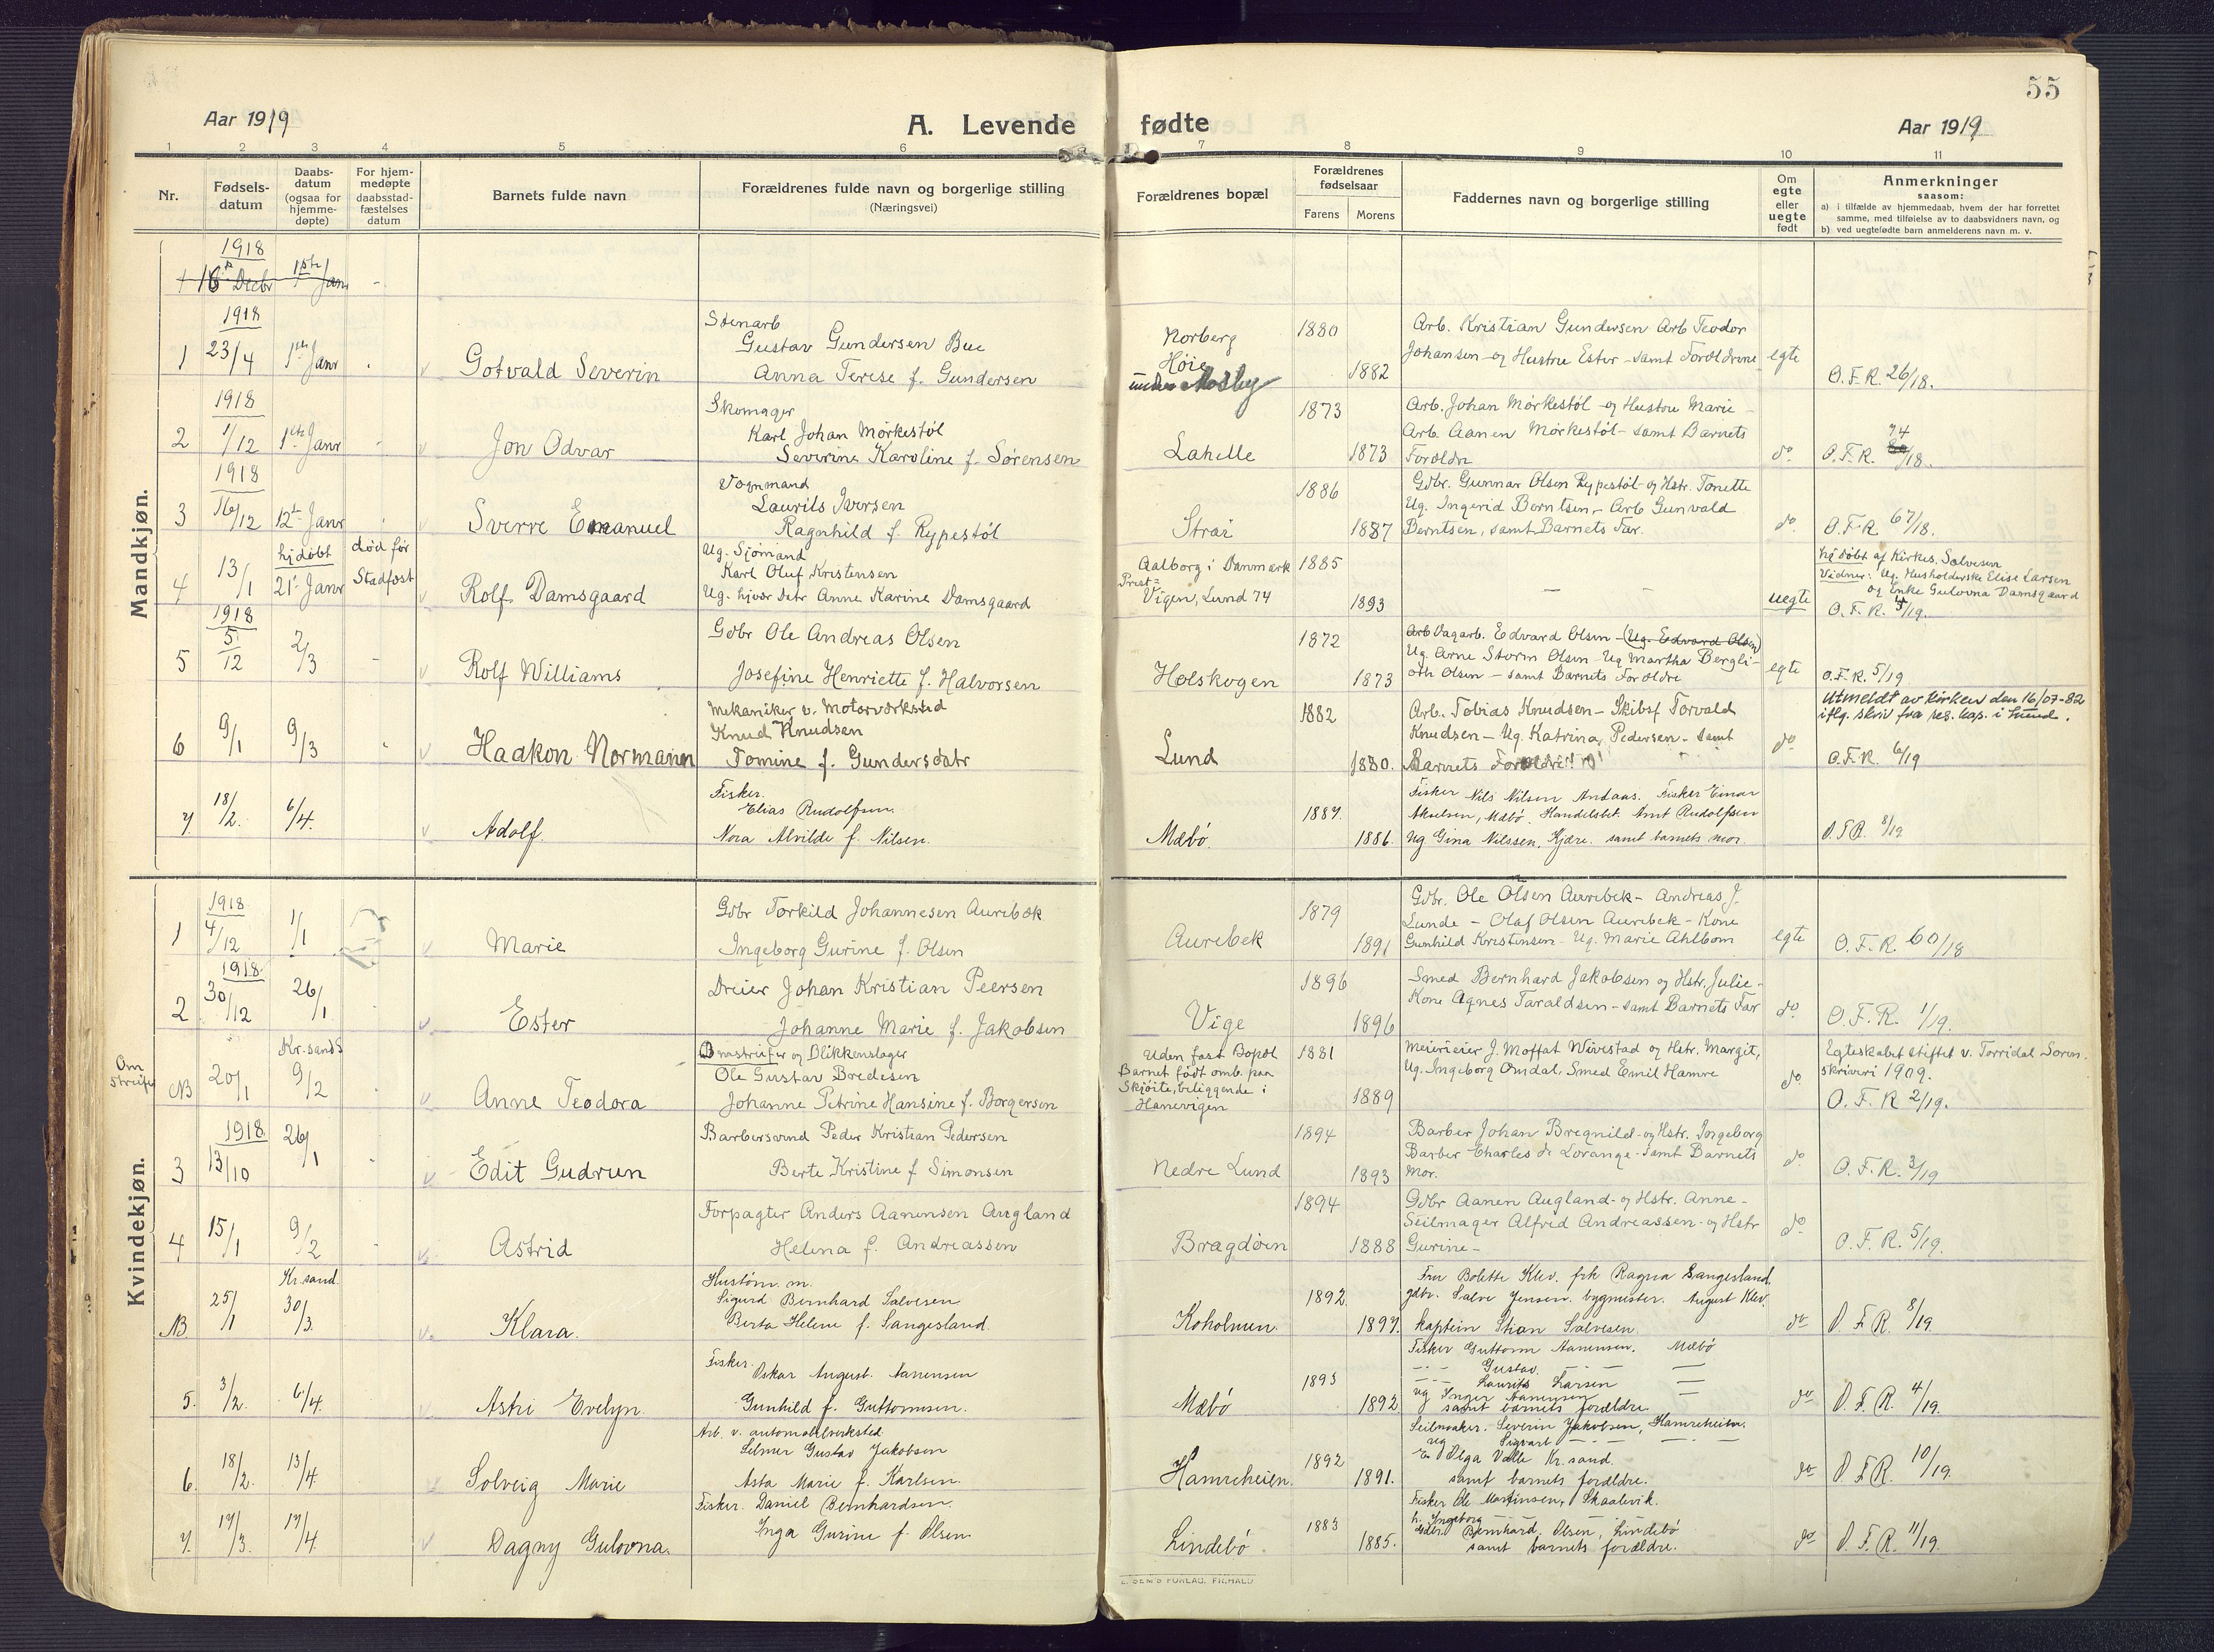 55
Aar 1919
A. Levende fødte
Aar 1919
1 2 3 4 5 6 7 8 9 10 11
Nr.
Fødsels-
datum
Daabs-
datum
(ogsaa for
hjemme-
døpte)
For hjem-
medøpte
daabsstad-
fæstelses
datum
Barnets fulde navn
Forældrenes fulde navn og borgerlige stilling
(Næringsvei)
Forældrenes bopæl
Forældrenes
fødselsaar
Farens Morens
Faddernes navn og borgerlige stilling
Om
egte
eller
uegte
født
Anmerkninger
saasom:
a) i tilfælde av hjemmedaab, hvem der har forrettet
samme, med tilføielse av to daabsvidners navn, og
b) ved uegtefødte barn anmelderens navn m. v.
Mandkjøn.
1918
1 16 Decbr 1ste Janr -
1918
1 23/4 1ste Janr
Gotvald Severin
Stenarb
Gustav Gundersen Bue
Anna Terese f. Gundersen
Norberg
Høie
under Mosby
1880
1882
Arb. Kristian Gundersen Arb Teodor
Johansen og Hustru Ester samt Forældrene
egte
O.F.R. 26/18.
1918
2 1/12 1ste Janr
Jon Odvar
Skomager
Karl Johan Mørkestøl
Severine Karoline f. Sørensen
Lahelle
1873
1873
Arb. Johan Mørkestøl og Hustru Marie
Arb Aanen Mørkestøl samt Barnets
Foreldre
do
O.F.R. 74/18.
1918
3 16/12 12te Janr
Sverre Emanuel
Vognmand
Laurits Iversen
Ragnhild f. Rypestøl
Strai
1886
1887
Gdbr. Gunnar Olsen Rypestøl og Hstr. Tonette
Ug. Ingerid Berntsen, Arb Gunvald
Berntsen, samt Barnets Far.
do
O.F.R. 67/18.
4 13/1 hjdøbt 21 Janr død før Stadfæst
Rolf Damsgaard
Ug. Sjømand
Karl Oluf Kristensen
Ug. hjvær. Datr Anne Karine Damsgaard
Aalborg i Danmark
Prest=
Vigen, Lund 74
1885
1893
uegte
hjdøbt af Kirkes. Salvesen
Vidner: Ug. Husholderske Elise Larsen
og Enke Gulovna Damsgaard
O.F.R. 4/19.
1918
5 5/12 2/3 -
Rolf Williams
Gdbr Ole Andreas Olsen
Josefine Henriette f. Halvorsen
Holskogen
1872
1873
Arb Dagarb. Edvard Olsen (Ug. Edvard Olsen)
Ug. Arne Storm Olsen Ug Martha Bergli-
oth Olsen samt Barnets Foreldre
egte
O.F.R. 5/19
6 9/1 9/3
Haakon Normann
Mekaniker v. Motorværksted
Knud Knudsen
Tomine f. Gundersdatr
Lund
1882
1880.
Arb. Tobias Knudsen Skibsf Torvald
Knudsen Ug. Katrina Pedersen samt
Barnets Foreldre
do
Utmeldt av kirken den 16/07-82
iflg. skriv fra res. kap. i Lund.
O.F.R. 6/19
7 18/2. 6/4.
Adolf.
Fisker.
Elias Rudolfsen.
Nora Alvilde f. Nilsen.
Mæbø.
1887.
1886.
Fisker Nils Nilsen Andaas. Fisker Einar
Akselsen, Mæbø. Handelsbet. Amt Rudolfsen
Ug Gina Nilssen, Kjære. samt barnets mor.
O.F.R. 8/19
Kvindekjøn.
1918
1 4/12 1/1
Marie
Gdbr Torkild Johannesen Aurebæk
Ingeborg Gurine f. Olsen
Aurebek
1879
1891
Gdbr. Ole Olsen Aurebek Andreas J.
Lunde Olaf Olsen Aurebek Kone
Gunhild Kristensen Ug. Marie Ahlbom
egte
O.F.R. 60/18
1918
2 30/12 26/1
Ester
Dreier Johan Kristian Peersen
Johanne Marie f. Jakobsen
Vige
1896
1896
Smed Bernhard Jakobsen og Hstr. Julie
Kone Agnes Taraldsen samt Barnets Far
do.
O.F.R. 1/19.
Om
streifer
NB 20/1 Kr.sand S 9/2
Anne Teodora
Omstreifer og Blikkenslager
Ole Gustav Bredesen
Johanne Petrine Hansine f. Borgersen
Uden fast Bopæl
Barnet født omb. paa
Skjøite, beliggende i
Hanevigen
1881
1889
Meierieier J. Moffat Wivestad og Hstr. Margit,
Ug. Ingeborg Omdal. Smed Emil Hamre
do
Egteskabet stiftet v. Torridal Soren-
skriveri 1909.
O.F.R 2/19.
1918
3 13/10 26/1
Edit Gudrun
Barbersvend Peder Kristian Pedersen
Berte Kristine f Simonsen
Nedre Lund
1894
1893
Barber Johan Bregnild og Hstr. Ingeborg
Barber Charles de Lorange samt Barnets
Mor.
do
O.F.R. 3/19
4 15/1 9/2
Astrid
Forpagter Anders Aanensen Augland
Helena f. Andreassen
Bragdøen
1894
1888
Gdbr Aanen Augland og Hstr. Anne
Seilmager Alfred Andreassen og Hstr
Gurine
do
O.F.R. 5/19.
NB. 25/1 Kr.sand. 30/3.
Klara.
Hustøm. m.
Sigurd Bernhard Salvesen
Berta Helene f. Sangesland.
Koholmen.
1892.
1897.
Fru Bolette Klev. frk Ragna Sangesland,
gdbr. Salve Jensen. bygmester. August Klev.
kaptein Stian Salvesen.
do
O.F.R. 8/19.
5. 3/2. 6/4.
Astri Evelyn.
Fisker.
Oskar August. Aanensen
Gunhild f. Guttormsen.
Mæbø
1893
1892.
Fisker Guttorm Aanensen. Mæbø
Gustav.
Laurits Larsen
ug Inger Aanensen
samt barnets forældre
do
O.F.R. 4/19.
6. 18/2. 13/4.
Solveig Marie
Arb. v. automobilverksted.
Selmer Gustav Jakobsen
Asta Marie f. Karlsen.
Hamreheien.
1892
1891.
Seilmaker. Severin Jakobsen, Hamreheien.
ug Sigvart
Olga Valle Kr.sand.
samt barnets forældre.
do
O.F.R. 10/19.
7. 17/3. 17/4
Dagny Gulovna.
Fisker. Daniel Bernhardsen.
Inga Gurine f. Olsen.
Lindebø.
1883
1885.
Fisker Ole Martinsen, Skaalevik.
h. Ingeborg
Gdbr. Bernhard. Olsen, Lindebø
samt barnets forældre.
do
O.F.R. 11/19.